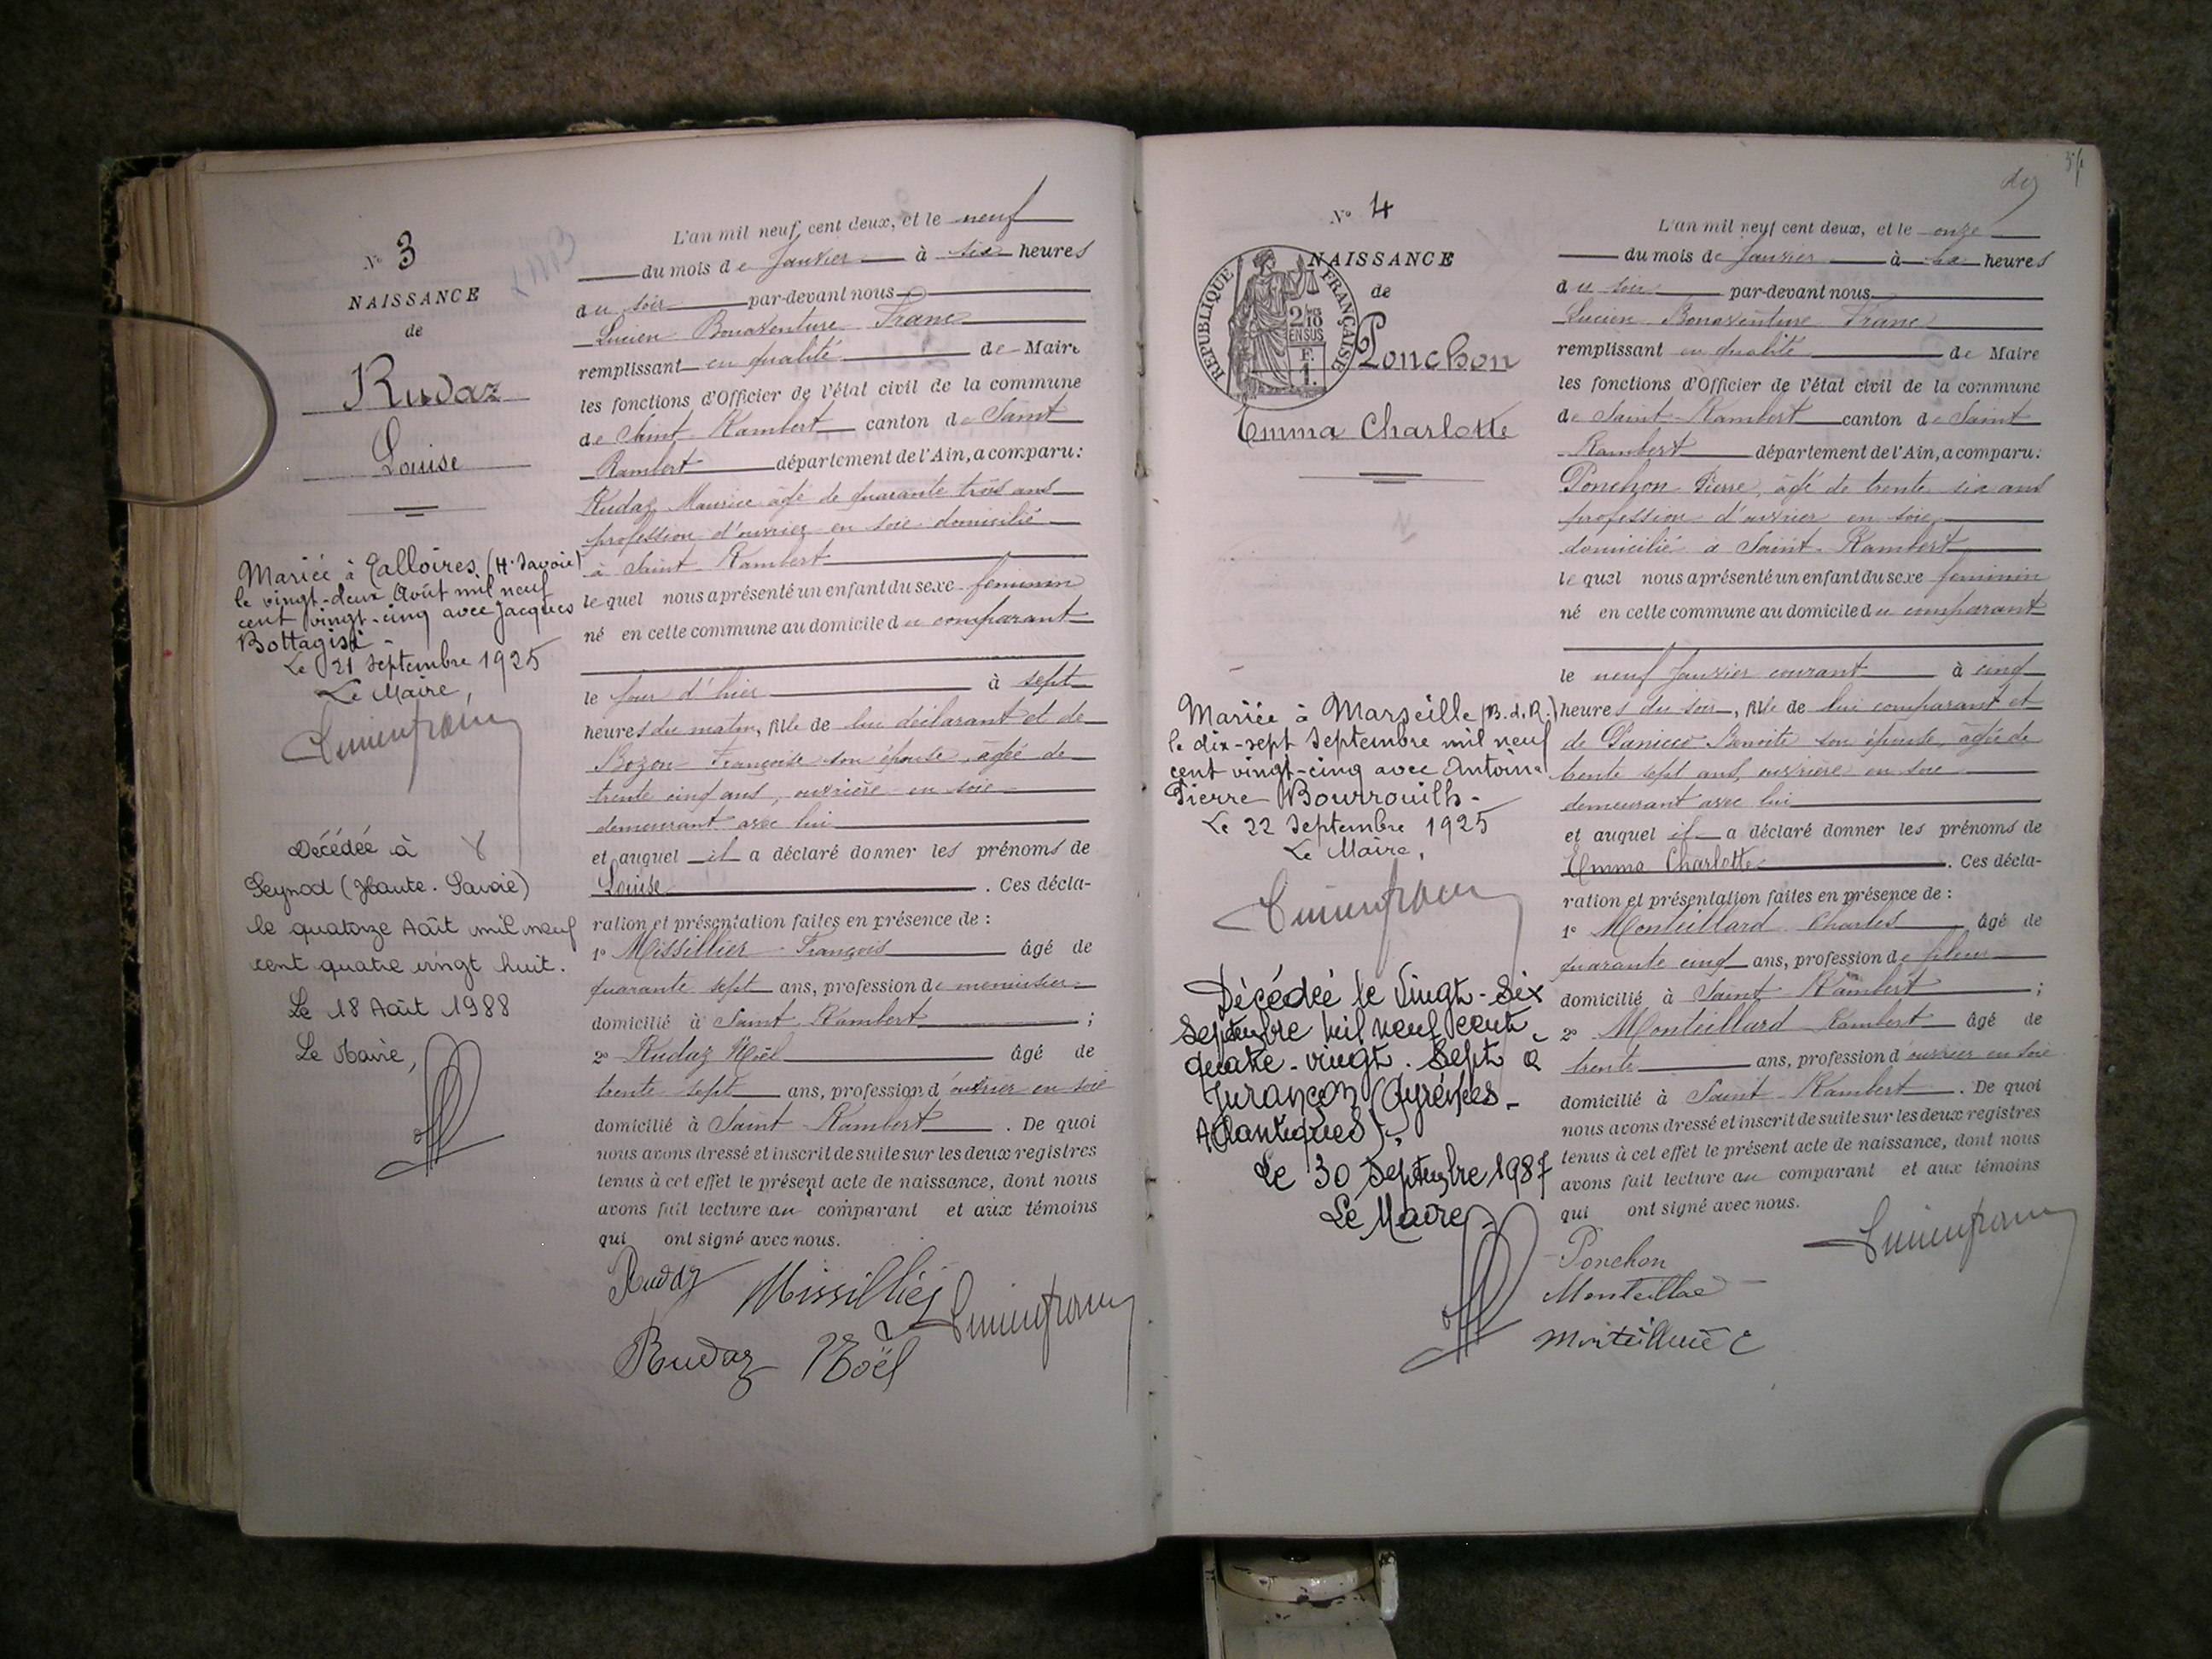 N° 3
NAISSANCE
de
Rudaz
Louise
Mariée à Talloires (H. Savoie)
le vingt-deux Août mil neuf
cent vingt-cinq avec Jacques
Bottagisi -
Le 21 Septembre 1925
Le Maire,
Décédée à
Seynod (Haute-Savoie)
le quatorze Août mil neuf
cent quatre vingt huit.
Le 18 Août 1988
Le Maire,
L'an mil neuf cent deux, et le neuf
du mois de Janvier à six heures
du soir par-devant nous
Lucien Bonaventure Franc
remplissant en qualité de Maire
les fonctions d'Officier de l'état civil de la commune
de Saint Rambert canton de Saint
Rambert département de l'Ain, a comparu:
Rudaz Maurice âgé de quarante trois ans
profession d'ouvrier en soie domicilié
à Saint Rambert
le quel nous a présenté un enfant du sexe feminin
né en cette commune au domicile du comparant
le jour d'hier à sept
heures du matin, fille de lui déclarant et de
Bozon Françoise son épouse, âgée de
trente cinq ans, ouvrière en soie
demeurant avec lui
et auquel il a déclaré donner les prénoms de
Louise . Ces décla-
ration et présentation faites en présence de :
1° Missillier François âgé de
quarante sept ans, profession de menuisier
domicilié à Saint Rambert ;
2° Rudaz Noël âgé de
trente sept ans, profession d'ouvrier en soie
domicilié à Saint Rambert . De quoi
nous avons dressé et inscrit de suite sur les deux registres
tenus à cet effet le présent acte de naissance, dont nous
avons fait lecture au comparant et aux témoins
qui ont signé avec nous.
Rudaz Missillier Lucien franc
Rudaz Noël
N° 4
NAISSANCE
de
RÉPUBLIQUE FRANÇAISE
2/10
EN SUS
F.
1.
Ponchon
Emma Charlotte
Mariée à Marseille (B.d.R.)
le dix-sept Septembre mil neuf
cent vingt-cinq avec Antoine
Pierre Bourrouilh -
Le 22 Septembre 1925
Le Maire,
Décédée le Vingt-Six
Septembre mil neuf cent
quatre-vingt-Sept à
Jurançon (Pyrénées-
Atlantiques).
Le 30 Septembre 1987
Le Maire
L'an mil neuf cent deux, et le onze
du mois de Janvier à heures
du soir par-devant nous
Lucien Bonaventure Franc
remplissant en qualité de Maire
les fonctions d'Officier de l'état civil de la commune
de Saint-Rambert canton de Saint
Rambert département de l'Ain, a comparu:
Ponchon Pierre, âgé de trente six ans
profession d'ouvrier en soie
domicilié à Saint-Rambert
le quel nous a présenté un enfant du sexe feminin
né en cette commune au domicile du comparant
le neuf Janvier courant à cinq
heures du soir, fille de lui comparant et
de Benoite son épouse, âgée de
trente sept ans, ouvrière en soie
demeurant avec lui
et auquel il a déclaré donner les prénoms de
Emma Charlotte . Ces décla-
ration et présentation faites en présence de :
1° Monteillard Charles âgé de
quarante cinq ans, profession de fileur
domicilié à Saint Rambert ;
2° Monteillard Rambert âgé de
trente ans, profession d'ouvrier en soie
domicilié à Saint-Rambert . De quoi
nous avons dressé et inscrit de suite sur les deux registres
tenus à cet effet le présent acte de naissance, dont nous
avons fait lecture au comparant et aux témoins
qui ont signé avec nous.
Ponchon Lucien franc